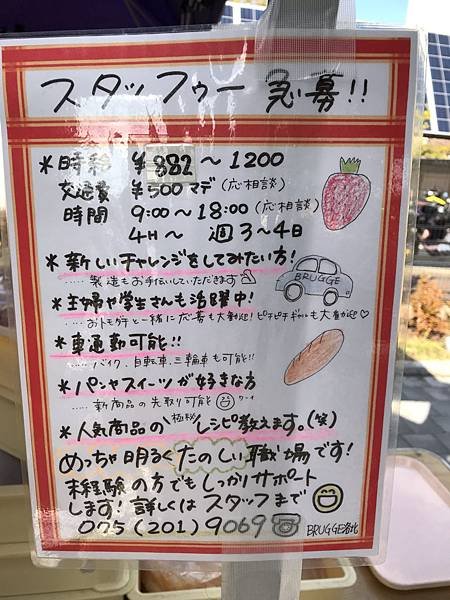 スタッフゥー 急募!!
*時給 ¥882～1200
交通費 ¥500マデ(応相談)
時間 9:00～18:00(応相談)
4H～ 週3～4日
*新しいチャレンジをしてみたい方!
‥‥製造もお手伝いしていただきます
BRUGGE
*主婦や学生さんも活躍中!
‥‥おトモダチと一緒に応募も大歓迎!ピチピチギャルも大歓迎♡
*車通勤可能!!
‥‥バイク、自転車、三輪車も可能!!
*パンやスイーツが好きな方
‥‥新商品の先取り可能 ワーイ
*人気商品の極秘レシピ教えます。(笑)
めっちゃ明るくたのしい職場です!
未経験の方でもしっかりサポート
します!詳しくはスタッフまで
075(201)9069
BRUGGE洛北